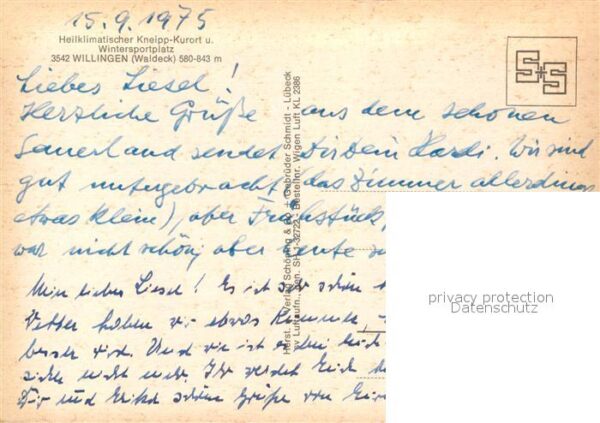 15.9.1975
Heilklimatischer Kneipp-Kurort u.
Wintersportplatz
3542 WILLINGEN (Waldeck) 580-843 m
Liebes Liesel!
Herzliche Grüße aus dem schönen
Sauerland sendet Dir Dein Hardi. Wir sind
gut untergebracht, das Zimmer allerdings
etwas klein), aber Frühstück,
war nicht schön, aber heute
Mein liebes Liesel! Es ist sehr schön
Wetter haben wir etwas Kummer,
besser wird. Und wie ist es bei Euch
nicht mehr. Ihr werdet Euch
Dir und Erika schöne Grüße von
Horst. Verlag Schöning & Co + Gebrüder Schmidt - Lübeck
Luftaufn., Gen. SH-1-32723, Bestellnr. Wigen Luft KL 2386
S+S
privacy protection
Datenschutz